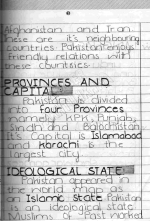 Afghanistan and Iran
these are it's neighbouring
countries. Pakistan enjoys
friendly relations with
these countries.
PROVINCES AND
CAPITAL:
Pakistan is divided
into four Provinces
namely KPK, Punjab,
Sindh and Balochistan
It's Capital is Islamabad
and Karachi is the
largest city.
IDEOLOGICAL STATE
Pakistan appeared on
the world map as
an Islamic State. Pakistan
is an ideological state.
Muslims Of Past